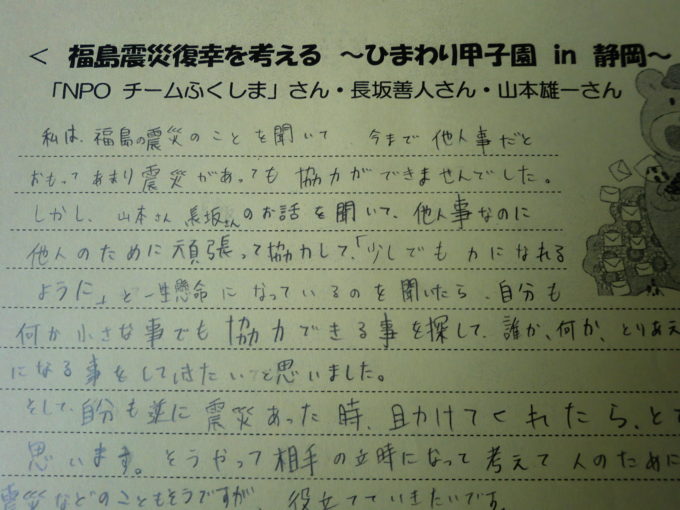 < 福島震災復幸を考える ~ひまわり甲子園 in 静岡~
「NPO チームふくしま」さん・長坂善人さん・山本雄一さん
私は、福島の震災のことを聞いて 今まで他人事だと
おもってあまり震災があっても協力ができませんでした。
しかし、山本さん 長坂さんのお話を聞いて、他人事なのに
他人のために頑張って協力して、「少しでも力になれる
ように」と一生懸命になっているのを聞いたら、自分も
何か小さな事でも協力できる事を探して、誰か、何か、とりあえ
になる事をしていきたいと思いました。
そして、自分も逆に震災あった時、助けてくれたら、とて
思います。そうやって相手の立時になって考えて人のために
震災などのこともそうですが、役立てていきたいです。